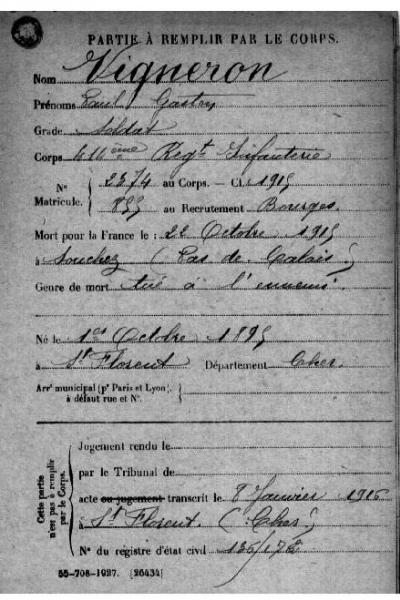 PARTIE À REMPLIR PAR LE CORPS.
Nom Vigneron
Prénoms Paul
Grade Soldat
Corps ème Regt Infanterie
Nº Matricule. 2574 au Corps. — Cl. 1915
au Recrutement Bourges
Mort pour la France le : 22 Octobre 1915
à Souchez (Pas de Calais)
Genre de mort tué à l'ennemi.
Né le 1er Octobre 1895
à St Florent Département Cher
Arrt municipal (pr Paris et Lyon),
à défaut rue et Nº.
Cette partie n'est pas à remplir par le Corps.
Jugement rendu le
par le Tribunal de
acte ou jugement transcrit le 8 Janvier 1916
à St Florent. (Cher)
Nº du registre d'état civil 136/178
55-708-1927. [26434]